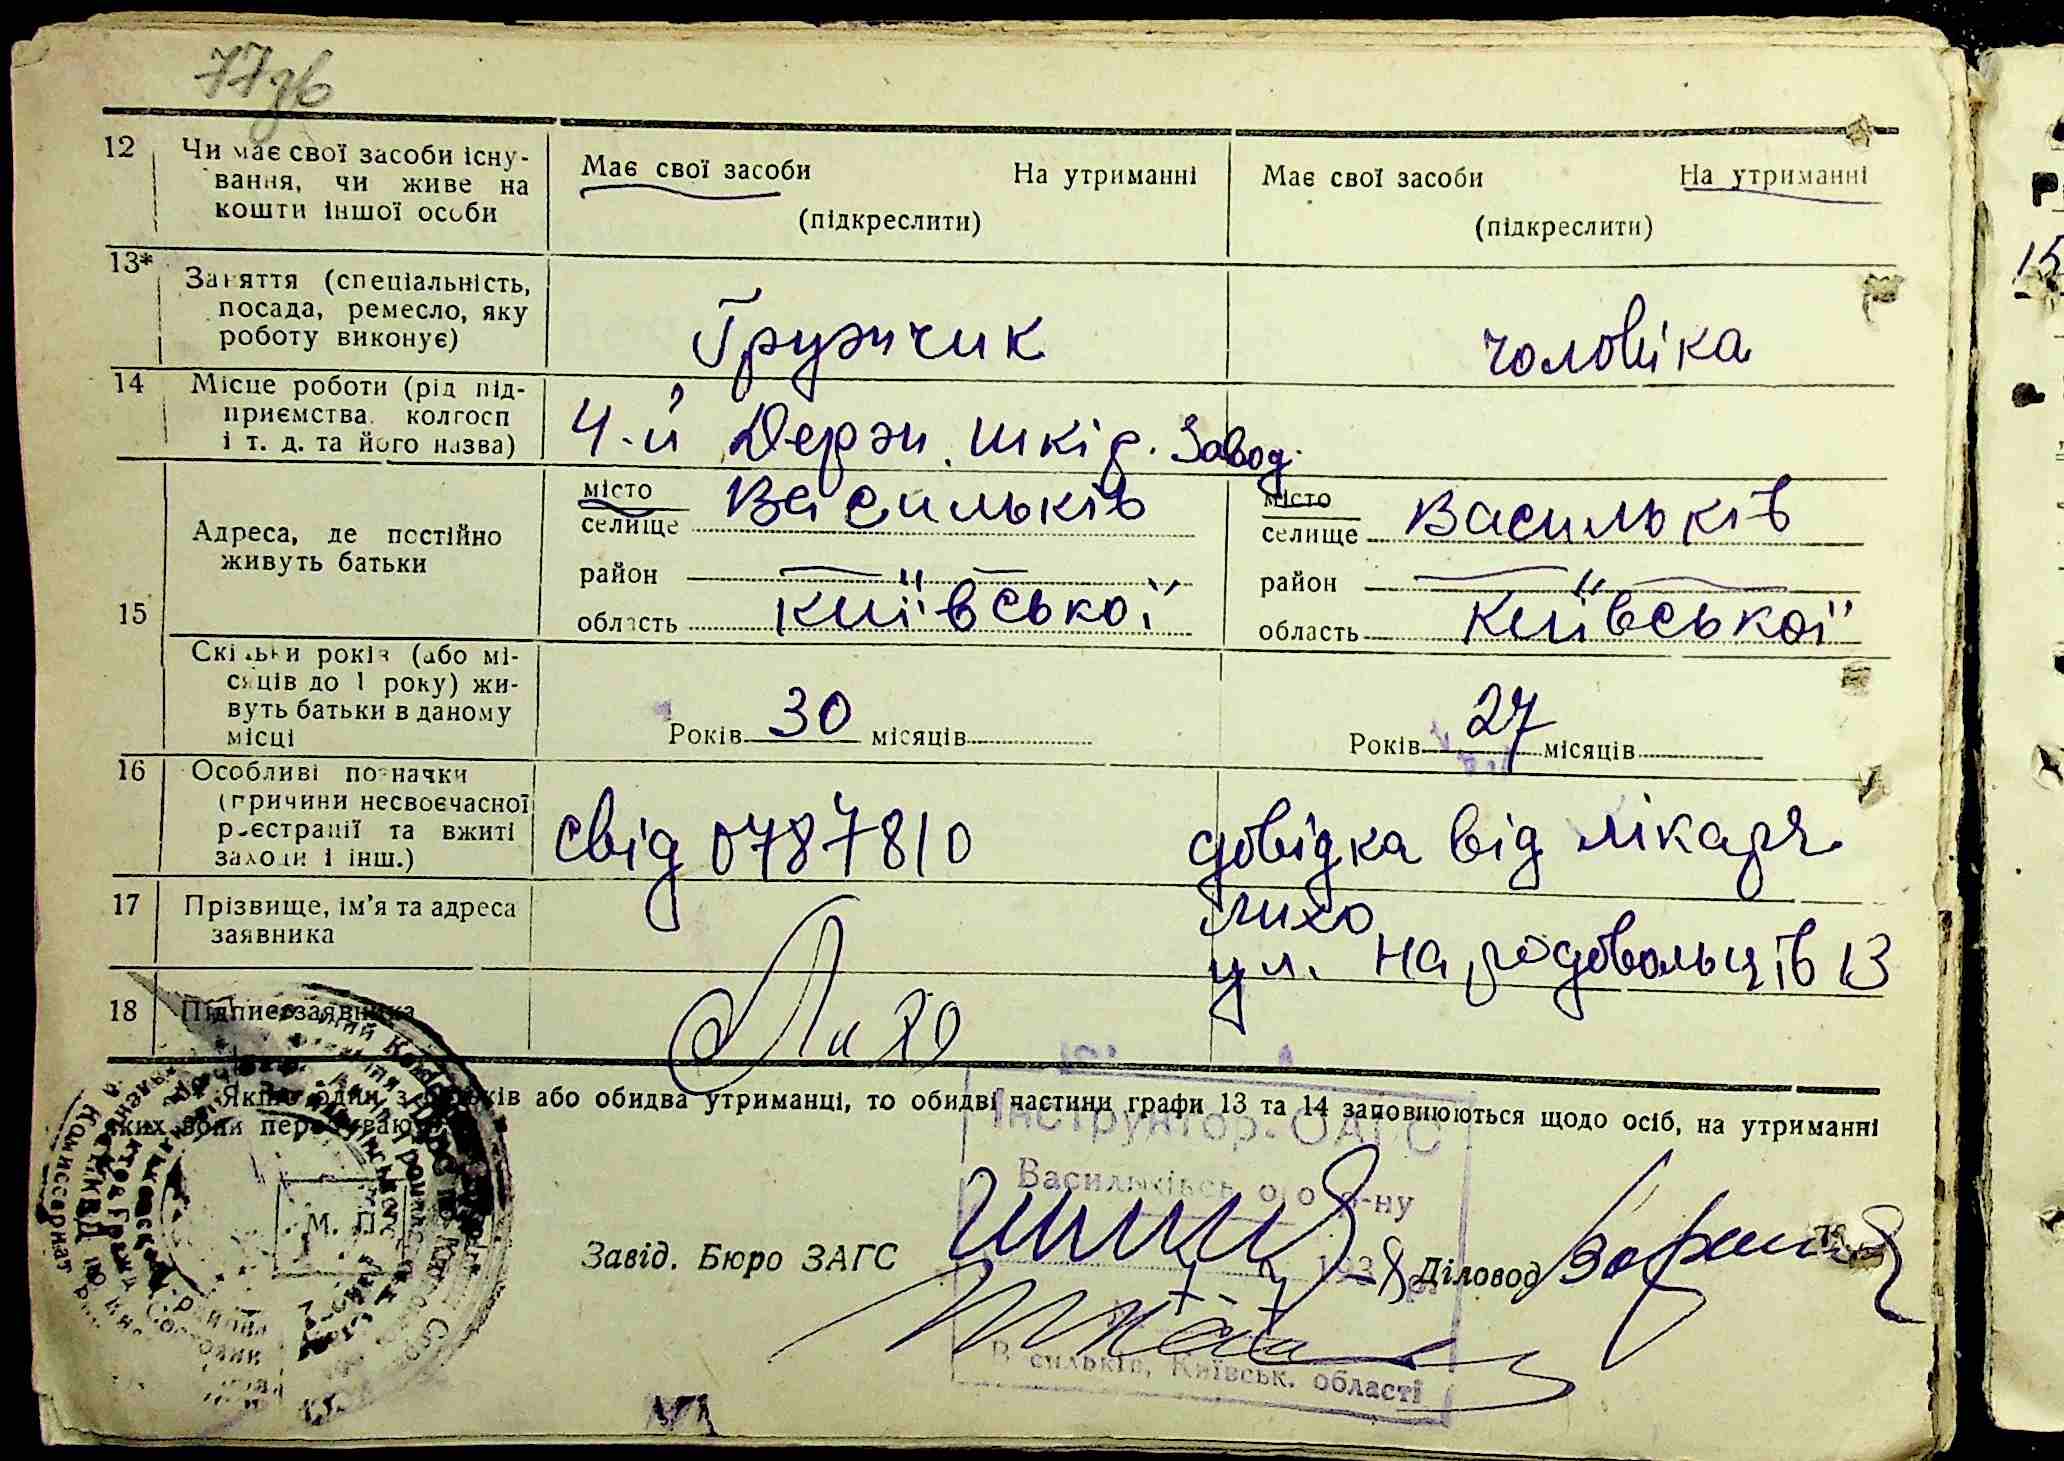 77зв
12 Чи має свої засоби існу-
вання, чи живе на
кошти іншої особи
Має свої засоби На утриманні
(підкреслити)
Має свої засоби На утриманні
(підкреслити)
13* Заняття (спеціальність,
посада, ремесло, яку
роботу виконує)
Грузчик
чоловіка
14 Місце роботи (рід під-
приємства, колгосп
і т. д. та його назва)
4-й Держ. шкір. Завод.
15
Адреса, де постійно
живуть батьки
місто
селище Васильків
район
область Київської
місто
селище Васильків
район
область Київської
Скільки років (або мі-
сяців до 1 року) жи-
вуть батьки в даному
місці
Років 30 місяців
Років 27 місяців
16 Особливі позначки
(причини несвоєчасної
реєстрації та вжиті
заходи і інш.)
свід 0787810
довідка від лікаря
17 Прізвище, ім'я та адреса
заявника
Лихо
ул. Народовольців 13
18 Підпис заявника
Лихо
Якщо один з батьків або обидва утриманці, то обидві частини графи 13 та 14 заповнюються щодо осіб, на утриманні
яких вони перебувають
Інструктор ОАГС
Васильківського р-ну
М. П.
Завід. Бюро ЗАГС
193 8 р.
Діловод
Васильків, Київськ. області